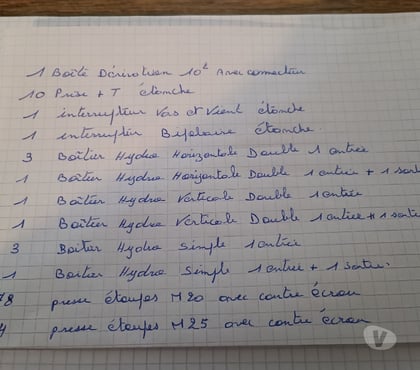 1 Boîte Dérivation 10² Avec connecteur
10 Prise + T étanche
1 interrupteur Vas et Vient étanche
1 interrupter Bipolaire étanche.
3 Boîtier Hydro Horizontale Double 1 entrée
1 Boîtier Hydro Horizontale Double 1 entrée + 1 sort
1 Boîtier Hydro Verticale Double 1 entrée
1 Boîtier Hydro Verticale Double 1 entrée + 1 sortie
3 Boitier Hydro Simple 1 entrée
1 Boitier Hydro Simple 1 entrée + 1 sortie.
78 presse étoupes M20 avec contre écrou
4 presse étoupes M25 avec contre écrou
V